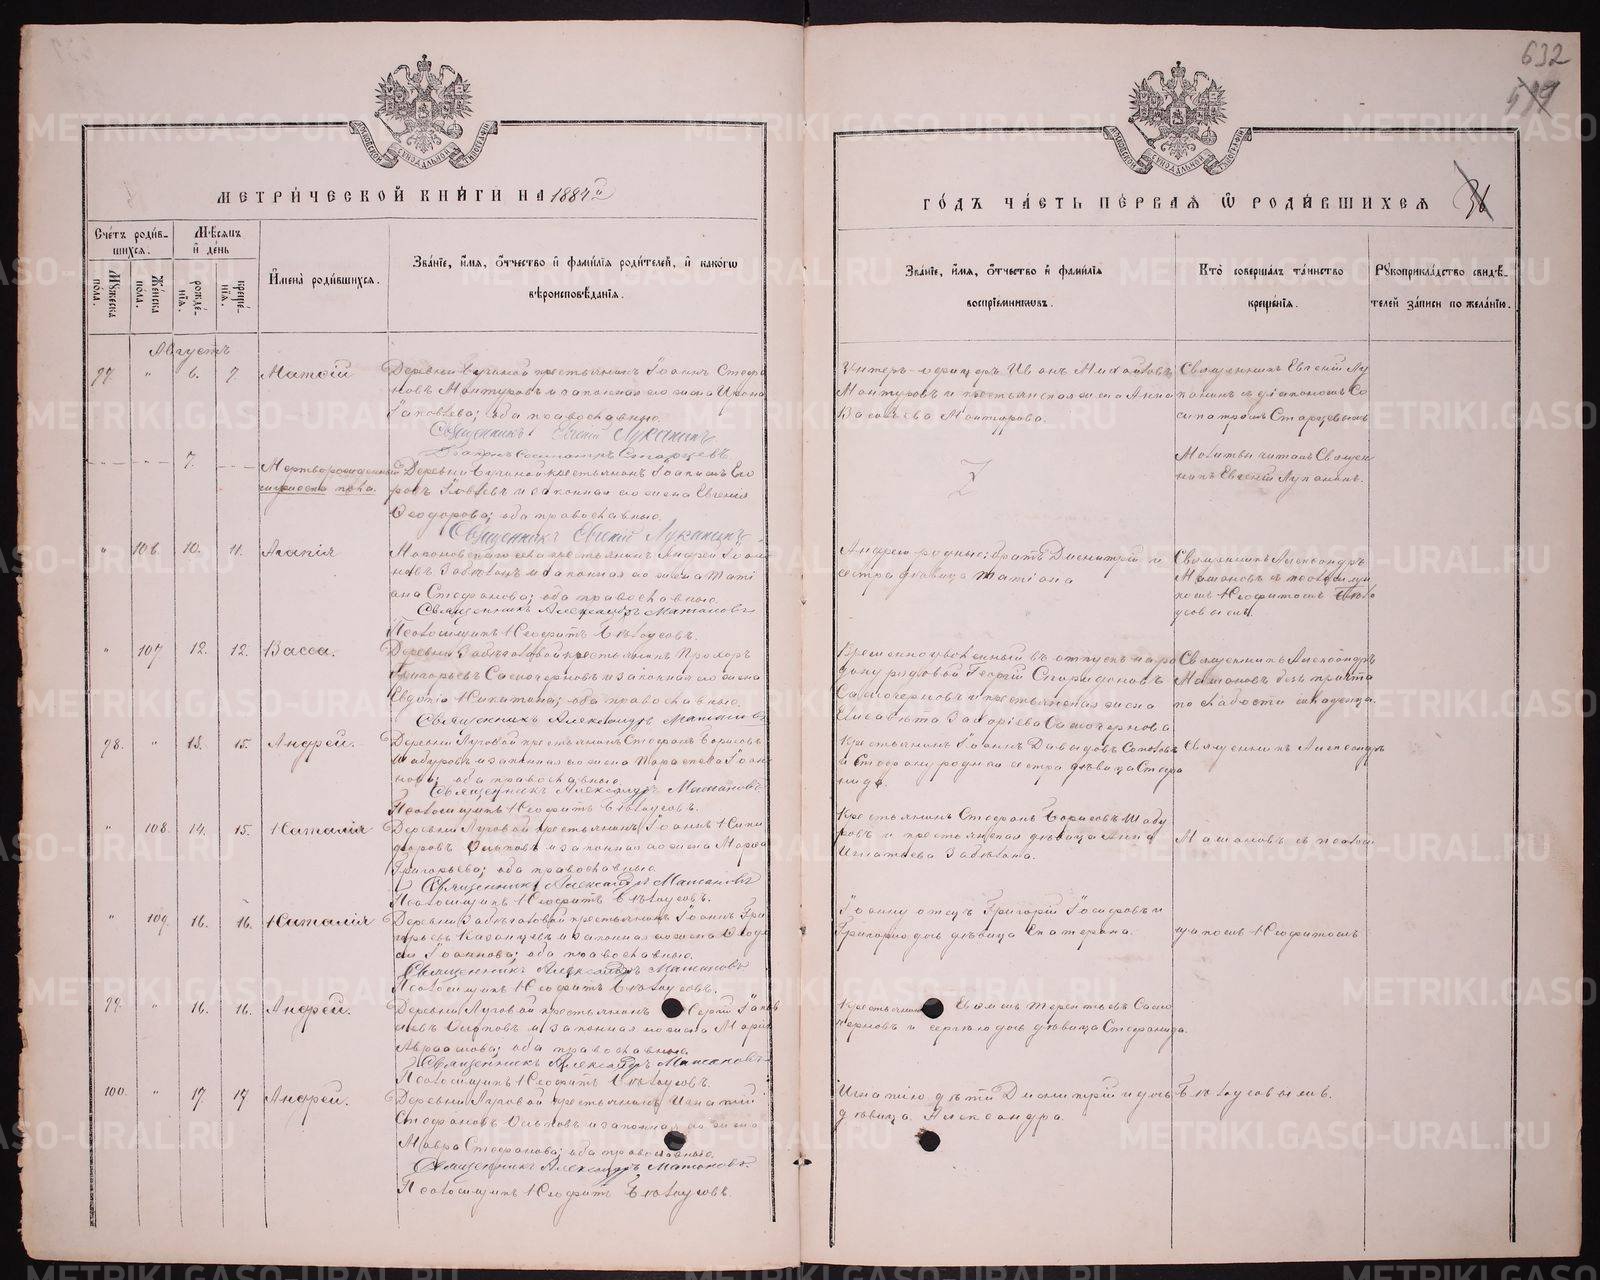 632
519
МЕТРИ́ЧЕСКОЙ КНИ́ГИ НА 1884й
ГО́ДЪ ЧА́СТЬ ПЕ́РВАЯ Ѡ РОДИ́ВШИХСЯ
36
Сче́тъ роди́в-
шихся.
Мꙋжеска по́ла.
Же́нска по́ла.
Мѣ́сяцъ
и҆ де́нь
рожде́-
нїя.
креще́-
нїя.
И҆мена̀ роди́вшихся.
Зва́нїе, и҆́мя, ѻ҆́тчество и҆ фами́лїя роди́телей, и҆ како́гѡ
вѣроисповѣ́данїя.
Зва́нїе, и҆́мя, ѻ҆́тчество и҆ фами́лїя
воспрїе́мникѡвъ.
Кто̀ соверша́лъ та́инство
креще́нїя.
Рꙋкоприкла́дство свидѣ́-
телей за́писи по жела́нїю.
Августъ
97. " 6. 7 Матѳій
Деревни крестьянинъ Іоаннъ Стефа
новъ Мантуровъ и законная его жена Ирина
Іаковлева; оба православные.
Священникъ Евгеній Луканинъ
Діаконъ Сосипатръ Старцевъ
Унтеръ-офицеръ Иванъ Михайловъ
Мантуровъ и крестьянская жена Анна
Васильева Мантурова.
Священникъ Евгеній Лу
канинъ съ діакономъ Со
сипатромъ Старцевымъ
7.
Мертворожденный
женска пола.
Деревни крестьянинъ Іоакимъ Его
ровъ и законная его жена Евгенія
Ѳеодорова; оба православные.
Священникъ Евгеній Луканинъ
Молитвы читалъ Священ
никъ Евгеній Луканинъ.
" 106. 10. 11. Агапія
крестьянинъ Андрей Іоан
новъ Заблотинъ и законная его жена Таті
ана Стефанова; оба православные.
Священникъ Александръ Мамановъ
Псаломщикъ Неофитъ Бѣлоусовъ.
Андрею родные: братъ Димитрій и
сестра дѣвица Татіана
Священникъ Александръ
Мамановъ съ псаломщи
комъ Неофитомъ Бѣло
усовымъ
" 107 12. 12. Васса.
Деревни крестьянинъ Прохоръ
Григорьевъ Самочерновъ и законная его жена
Евдокія Никитина; оба православные.
Священникъ Александръ Мамановъ
Временноуволенный въ отпускъ на ро
дину рядовой Георгій Спиридоновъ
Самочерновъ и крестьянская жена
Елисавета Захаріева Самочернова
Священникъ Александръ
Мамановъ безъ причта
по слабости младенца.
98. " 13. 15. Андрей.
Деревни Луговой крестьянинъ Стефанъ Борисовъ
Шабуровъ и законная его жена Параскева Іоан
нова; оба православные.
Священникъ Александръ Мамановъ
Псаломщикъ Неофитъ Бѣлоусовъ.
Крестьянинъ Іоаннъ Давыдовъ
и Стефану родная сестра дѣвица Стефа
нида.
Священникъ Александръ
" 108. 14. 15. Наталія
Деревни Луговой крестьянинъ Іоаннъ Ники
форовъ Осиповъ и законная его жена Марѳа
Григорьева; оба православные.
Священникъ Александръ Мамановъ
Псаломщикъ Неофитъ Бѣлоусовъ.
Крестьянинъ Стефанъ Борисовъ Шабу
ровъ и крестьянская дѣвица Анна
Игнатіева Заблотина.
Мамановъ съ псалом
" 109. 16. 16. Наталія
Деревни крестьянинъ Іоаннъ Гри
горьевъ Казанцевъ и законная его жена Ѳеодо
сія Іоаннова; оба православные.
Священникъ Александръ Мамановъ
Псаломщикъ Неофитъ Бѣлоусовъ.
Іоанну отецъ Григорій Іосифовъ и
Григорія дочь дѣвица Екатерина.
щикомъ Неофитомъ
99. " 16. 16. Андрей.
Деревни Луговой крестьянинъ Сергій Іаков
левъ Осиповъ и законная его жена Марія
Авраамова; оба православные.
Священникъ Александръ Мамановъ
Псаломщикъ Неофитъ Бѣлоусовъ.
Крестьянинъ Терентьевъ Само
черновъ и Сергію дочь дѣвица Стефанида.
100. " 17. 17 Андрей.
Деревни Луговой крестьянинъ Игнатій
Стефановъ Осиповъ и законная его жена
Мавра Стефанова; оба православные.
Священникъ Александръ Мамановъ
Псаломщикъ Неофитъ Бѣлоусовъ.
Игнатію дѣти Димитрій и дочь
дѣвица Александра.
Бѣлоусовымъ.
METRIKI.GASO-URAL.RU